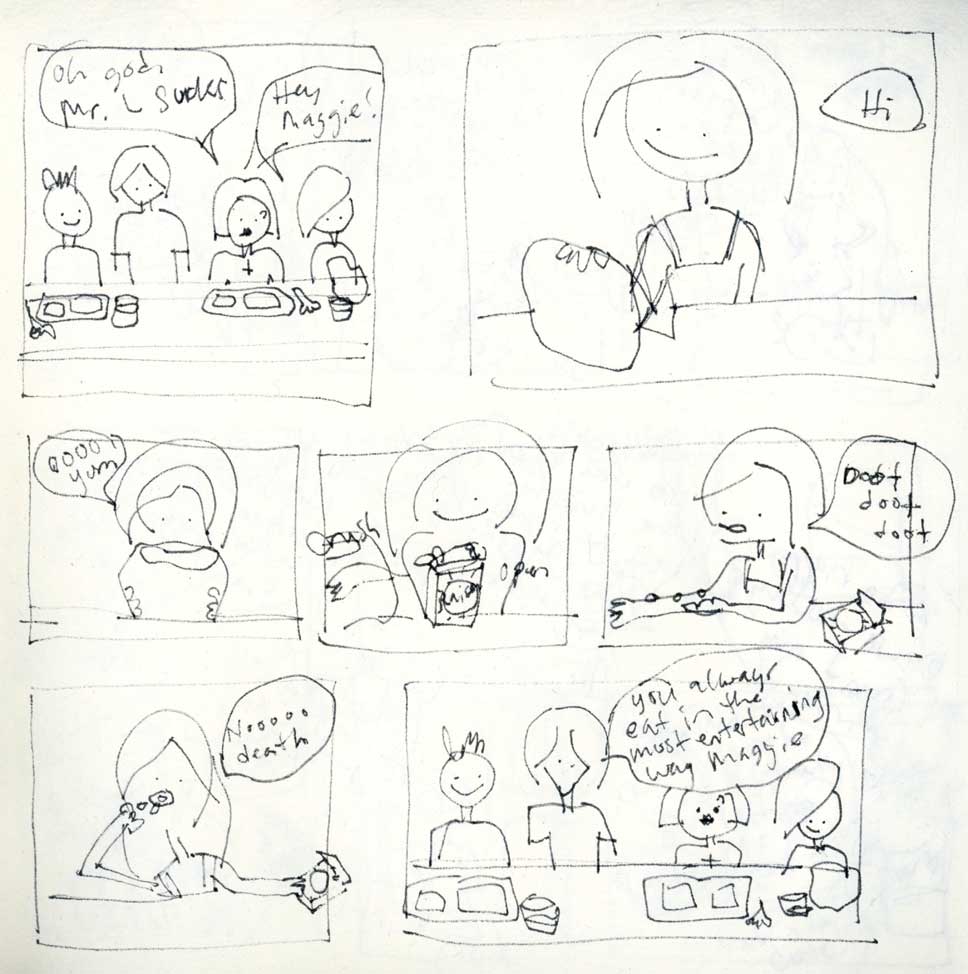 Oh god,
Mr. L Sucks
Hey
Maggie!
Hi
oooo
yum
open
Doot
doot
doot
Nooooo
death
you always
eat in the
most entertaining
way Maggie